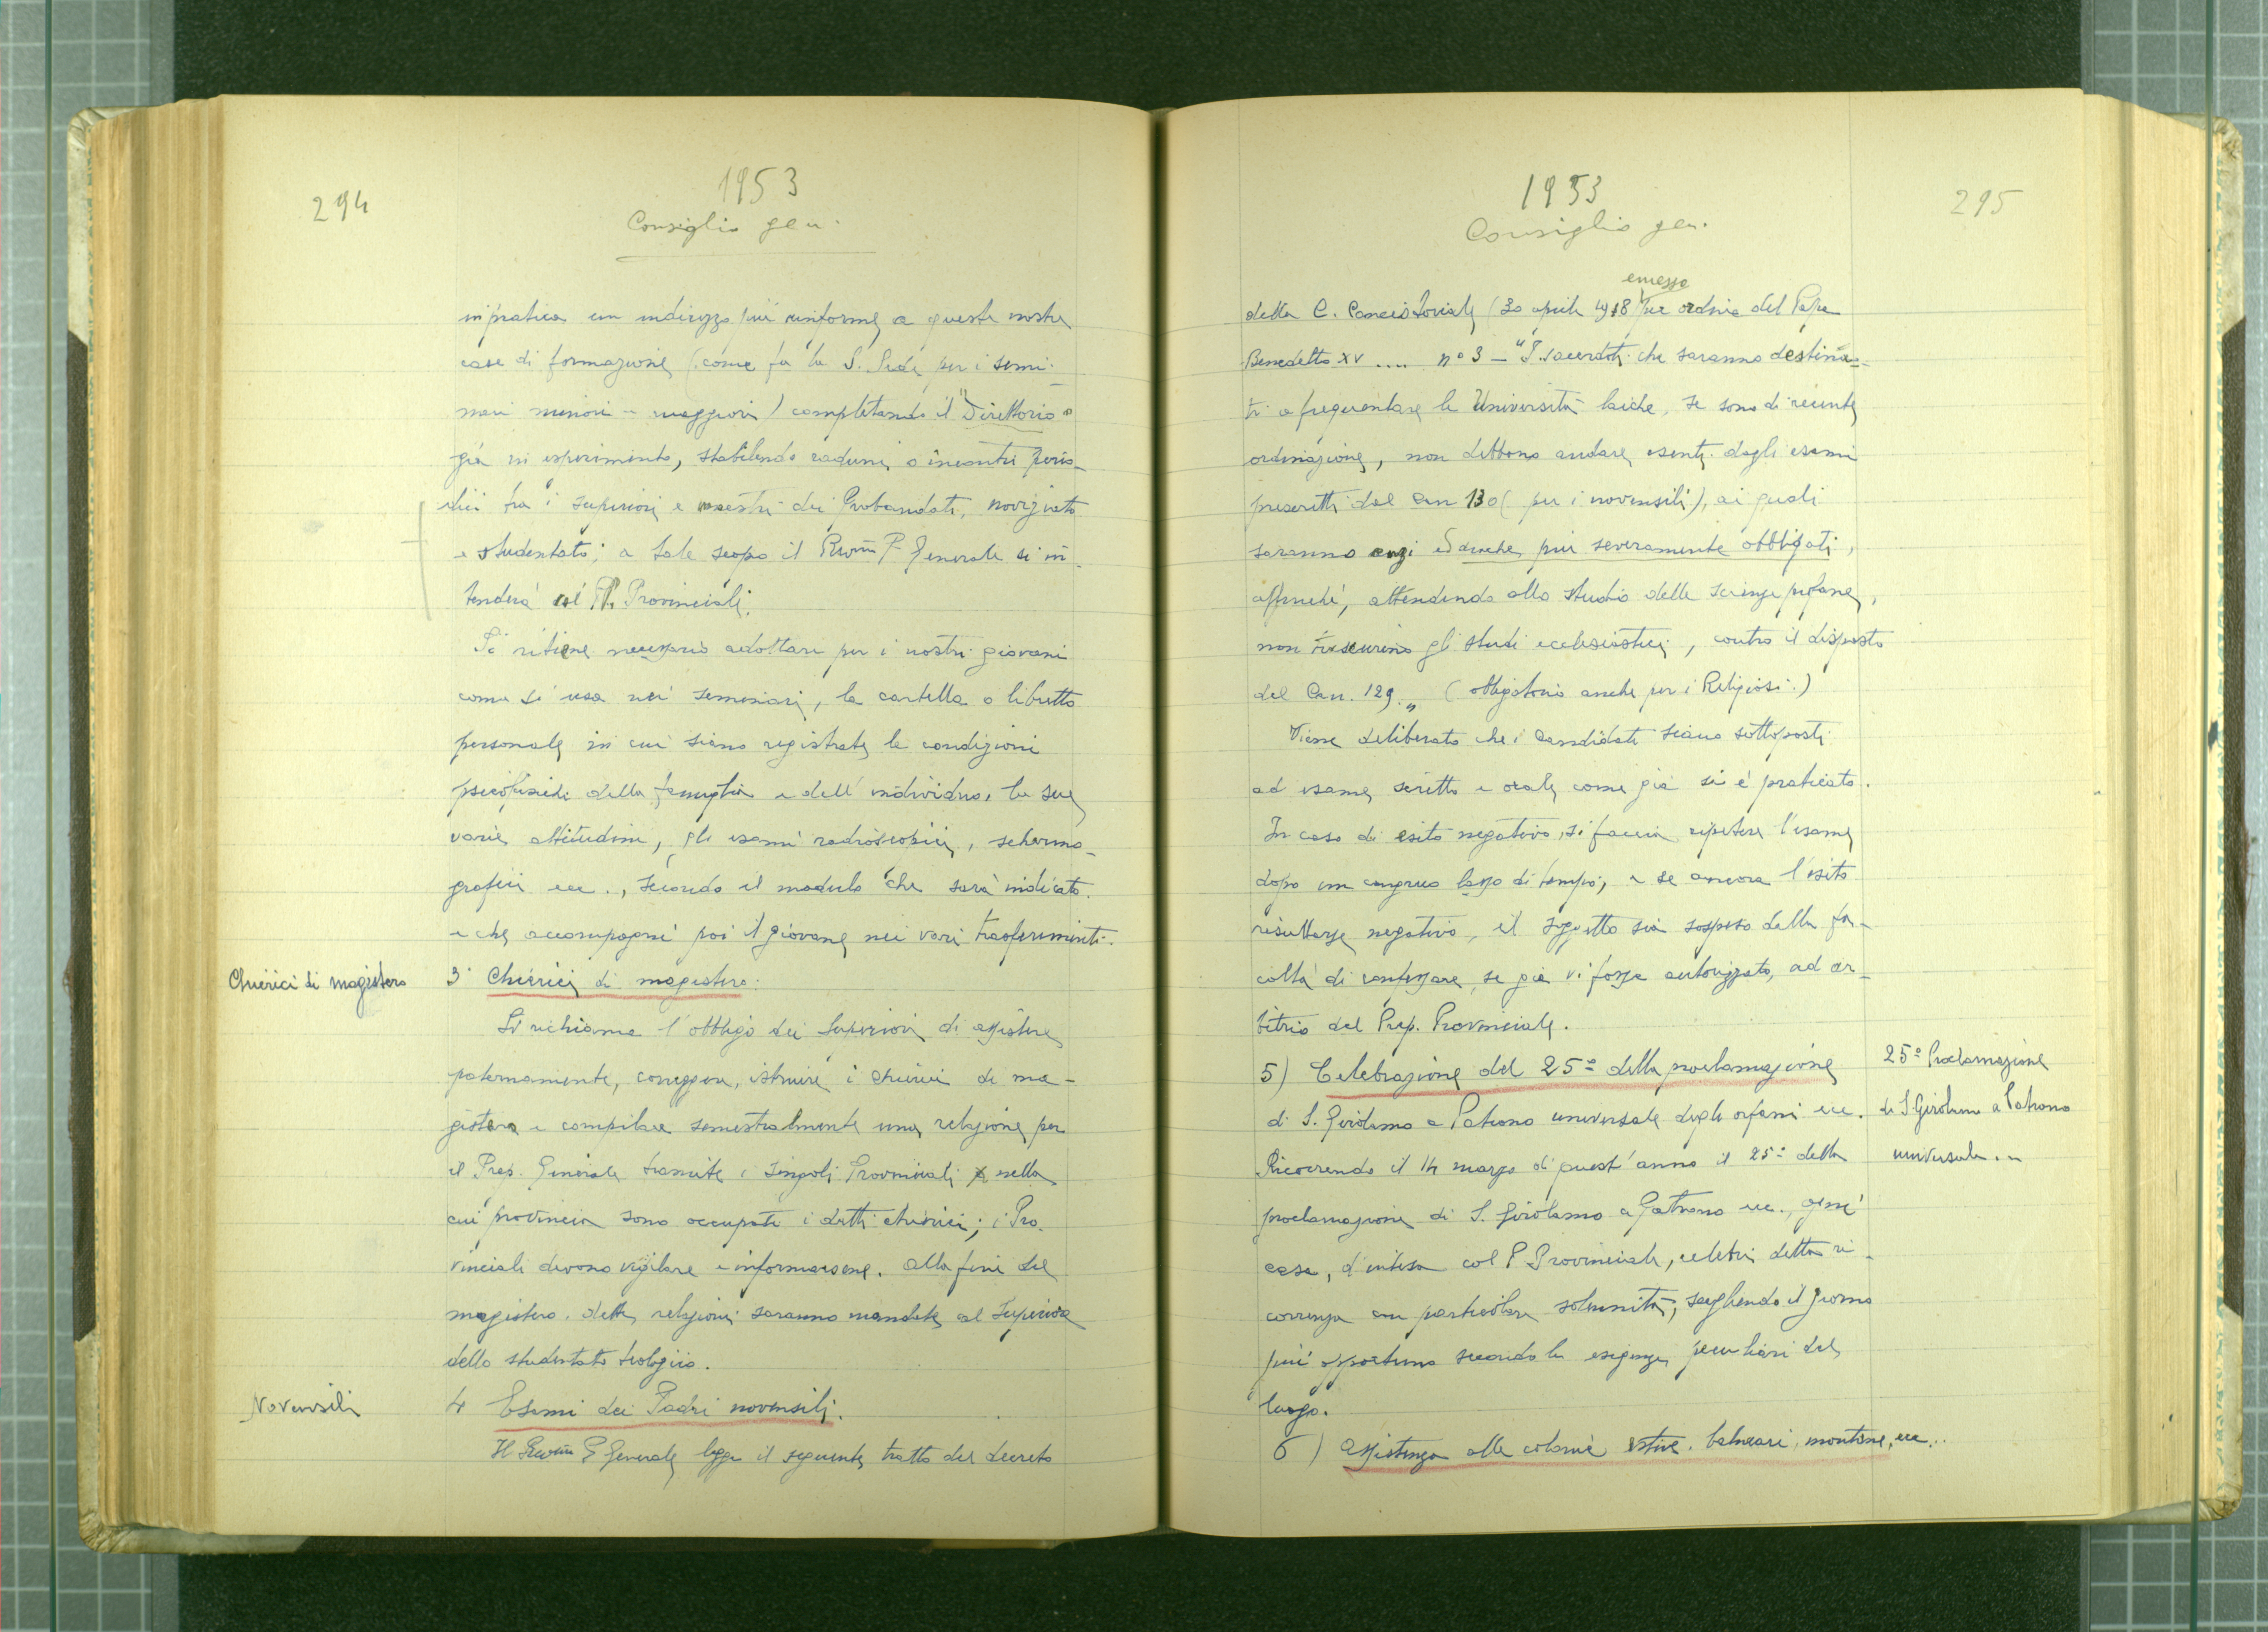 294
1953
Consiglio gen.
in pratica un indirizzo più uniforme a queste nostre
case di formazione (come fa la S. Sede per i semi-
nari minori e maggiori) completando il "Direttorio"
già in esperimento, stabilendo raduni o incontri perio-
dici fra i superiori e maestri dei Probandati, noviziato
e studentato; a tale scopo il Rev.mo P. Generale si in-
tenderà coi PP. Provinciali.
Si ritiene necessario adottare per i nostri giovani
come si usa nei seminari, la cartella o libretto
personale in cui siano registrate le condizioni
psicofisiche della famiglia e dell'individuo, le sue
varie attitudini, gli esami radioscopici, schermo-
grafici ecc., secondo il modulo che sarà indicato
e che accompagni poi il giovane nei vari trasferimenti.
Chierici di magistero
3° Chierici di magistero:
Si richiama l'obbligo dei Superiori di assistere
paternamente, correggere, istruire i chierici di ma-
gistero e compilare semestralmente una relazione per
il Prep. Generale tramite i singoli Provinciali nella
cui provincia sono occupati i detti chierici; i Pro-
vinciali devono vigilare e informarsene. Alla fine del
magistero dette relazioni saranno mandate al Superiore
dello studentato teologico.
Novensili
4 Esami dei Padri novensili.
Il Rev.mo P. Generale legge il seguente tratto del decreto
1953
295
Consiglio gen.
emesso
della C. Concistoriale (30 aprile 1918 per ordine del Papa
Benedetto XV .... n° 3 - "I sacerdoti che saranno destina-
ti a frequentare le Università laiche, se sono di recente
ordinazione, non debbono andare esenti dagli esami
prescritti dal Can 130 (per i novensili), ai quali
saranno anzi ed anche più severamente obbligati,
affinché, attendendo allo studio delle scienze profane,
non trascurino gli studi ecclesiastici, contro il disposto
del Can. 129." (obbligatorio anche per i Religiosi.)
Viene deliberato che i candidati siano sottoposti
ad esame scritto e orale come già si è praticato.
In caso di esito negativo, si faccia ripetere l'esame
dopo un congruo lasso di tempo; e se ancora l'esito
risultasse negativo, il soggetto sia sospeso dalla fa-
coltà di confessare, se già vi fosse autorizzato, ad ar-
bitrio del Prep. Provinciale.
5) Celebrazione del 25° della proclamazione
25° Proclamazione
di S. Girolamo a Patrono universale degli orfani ecc.
di S. Girolamo a Patrono
Ricorrendo il 14 marzo di quest'anno il 25° della
universale ...
proclamazione di S. Girolamo a Patrono ecc., ogni
casa, d'intesa col P. Provinciale, celebri detta ri-
correnza con particolare solennità, scegliendo il giorno
più opportuno secondo le esigenze peculiari del
luogo.
6) Assistenza alle colonie estive, balneari, montane, ecc...